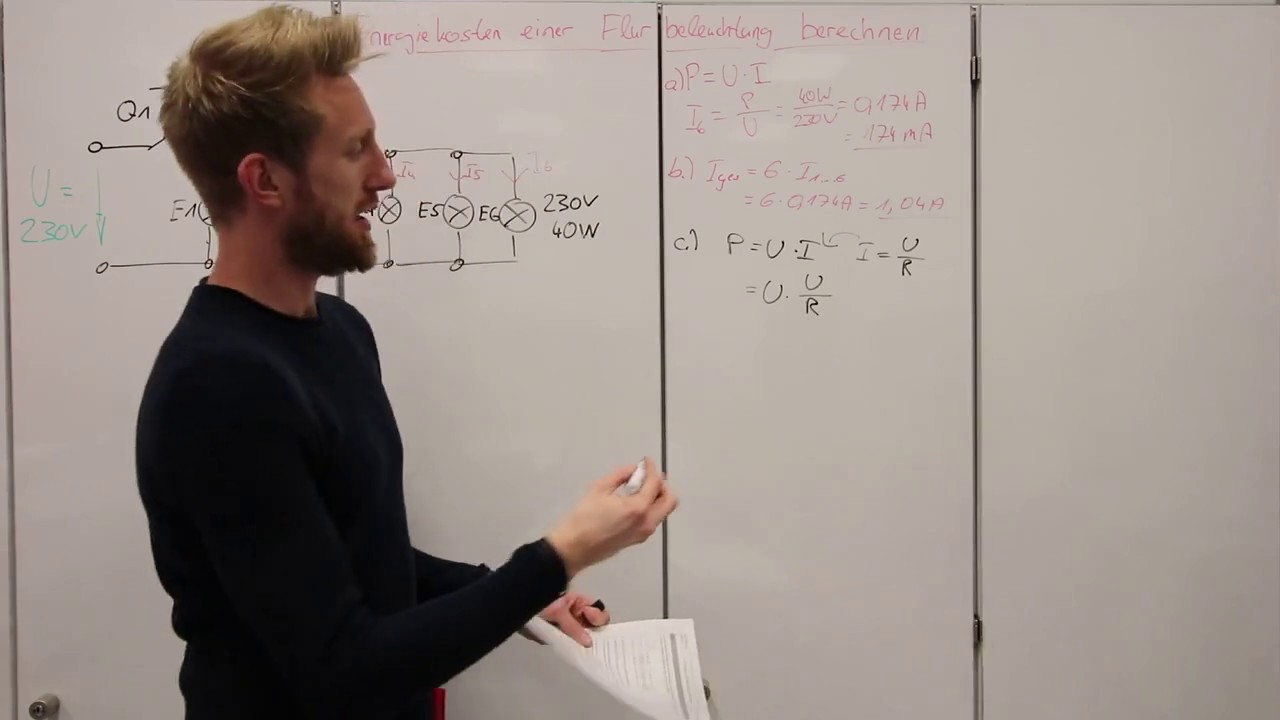 Energiekosten einer Flurbeleuchtung berechnen
Q1
U =
230V
E1
I4 I5 I6
E5 E6
230V
40W
a) P = U · I
I6 = P/U = 40W/230V = 0,174A
= 174 mA
b.) Iges = 6 · I1...6
= 6 · 0,174A = 1,04A
c.) P = U · I I = U/R
= U · U/R